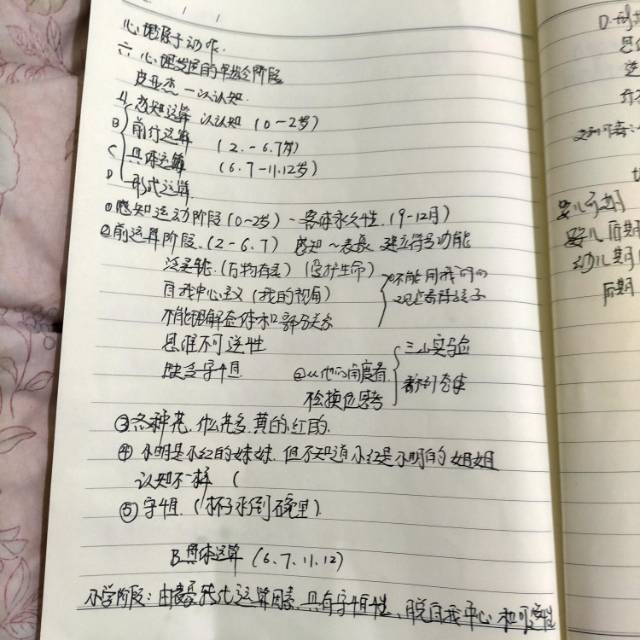 心理起源于动作.
六 心理发展的年龄阶段
皮亚杰 — 认知
A 感知运算 认知 (0-2岁)
B 前行运算 (2.-6.7岁)
C 具体运算 (6.7-11.12岁)
D 形式运算
①感知运动阶段(0~2岁) - 客体永久性. (9-12月)
②前运算阶段. (2-6.7) 感知~表象 建立符号功能
泛灵论 (万物有灵) (爱护生命)
自我中心主义 (我的视角)
不能用我们的
观点看待孩子
不能理解整体和部分关系
思维不可逆性
三山实验
缺乏守恒
②从他的角度看
检换位思考
③各种花. 什么花多. 黄的. 红的.
④ 小明是小红的妹妹. 但不知道小红是小明的姐姐
认知不一样 (
⑤ 守恒. (杯子 倒 碗里)
B具体运算 (6.7.11.12)
小学阶段: 由 转化运算因素 具有守恒性、脱自我中心 和可逆性
D.
婴儿前期
婴儿后期
幼儿期
后期